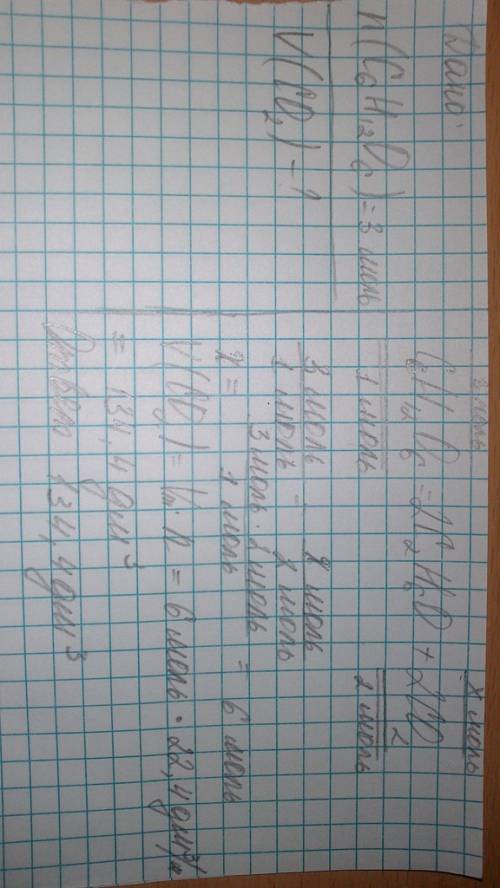 Дано:
n(C6H12O6) = 3 моль
V(CO2) - ?
3 моль x моль
C6H12O6 = 2C2H6O + 2CO2
1 моль 2 моль
3 моль - x моль
1 моль - 2 моль
x = 3 моль · 2 моль / 1 моль = 6 моль
V(CO2) = Vm · n = 6 моль · 22,4 дм³/моль
= 134,4 дм³
Ответ: 134,4 дм³